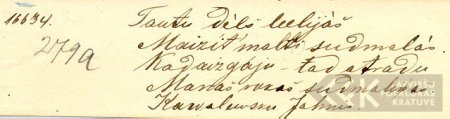 16634.
279a
Tautu dēls leelijās
Maizit' malti sudmalās.
Kad aizgāju - tad atradu
Manās rokās sudmaliņas
LATVIEŠU
FOLKLORAS
KRĀTUVE